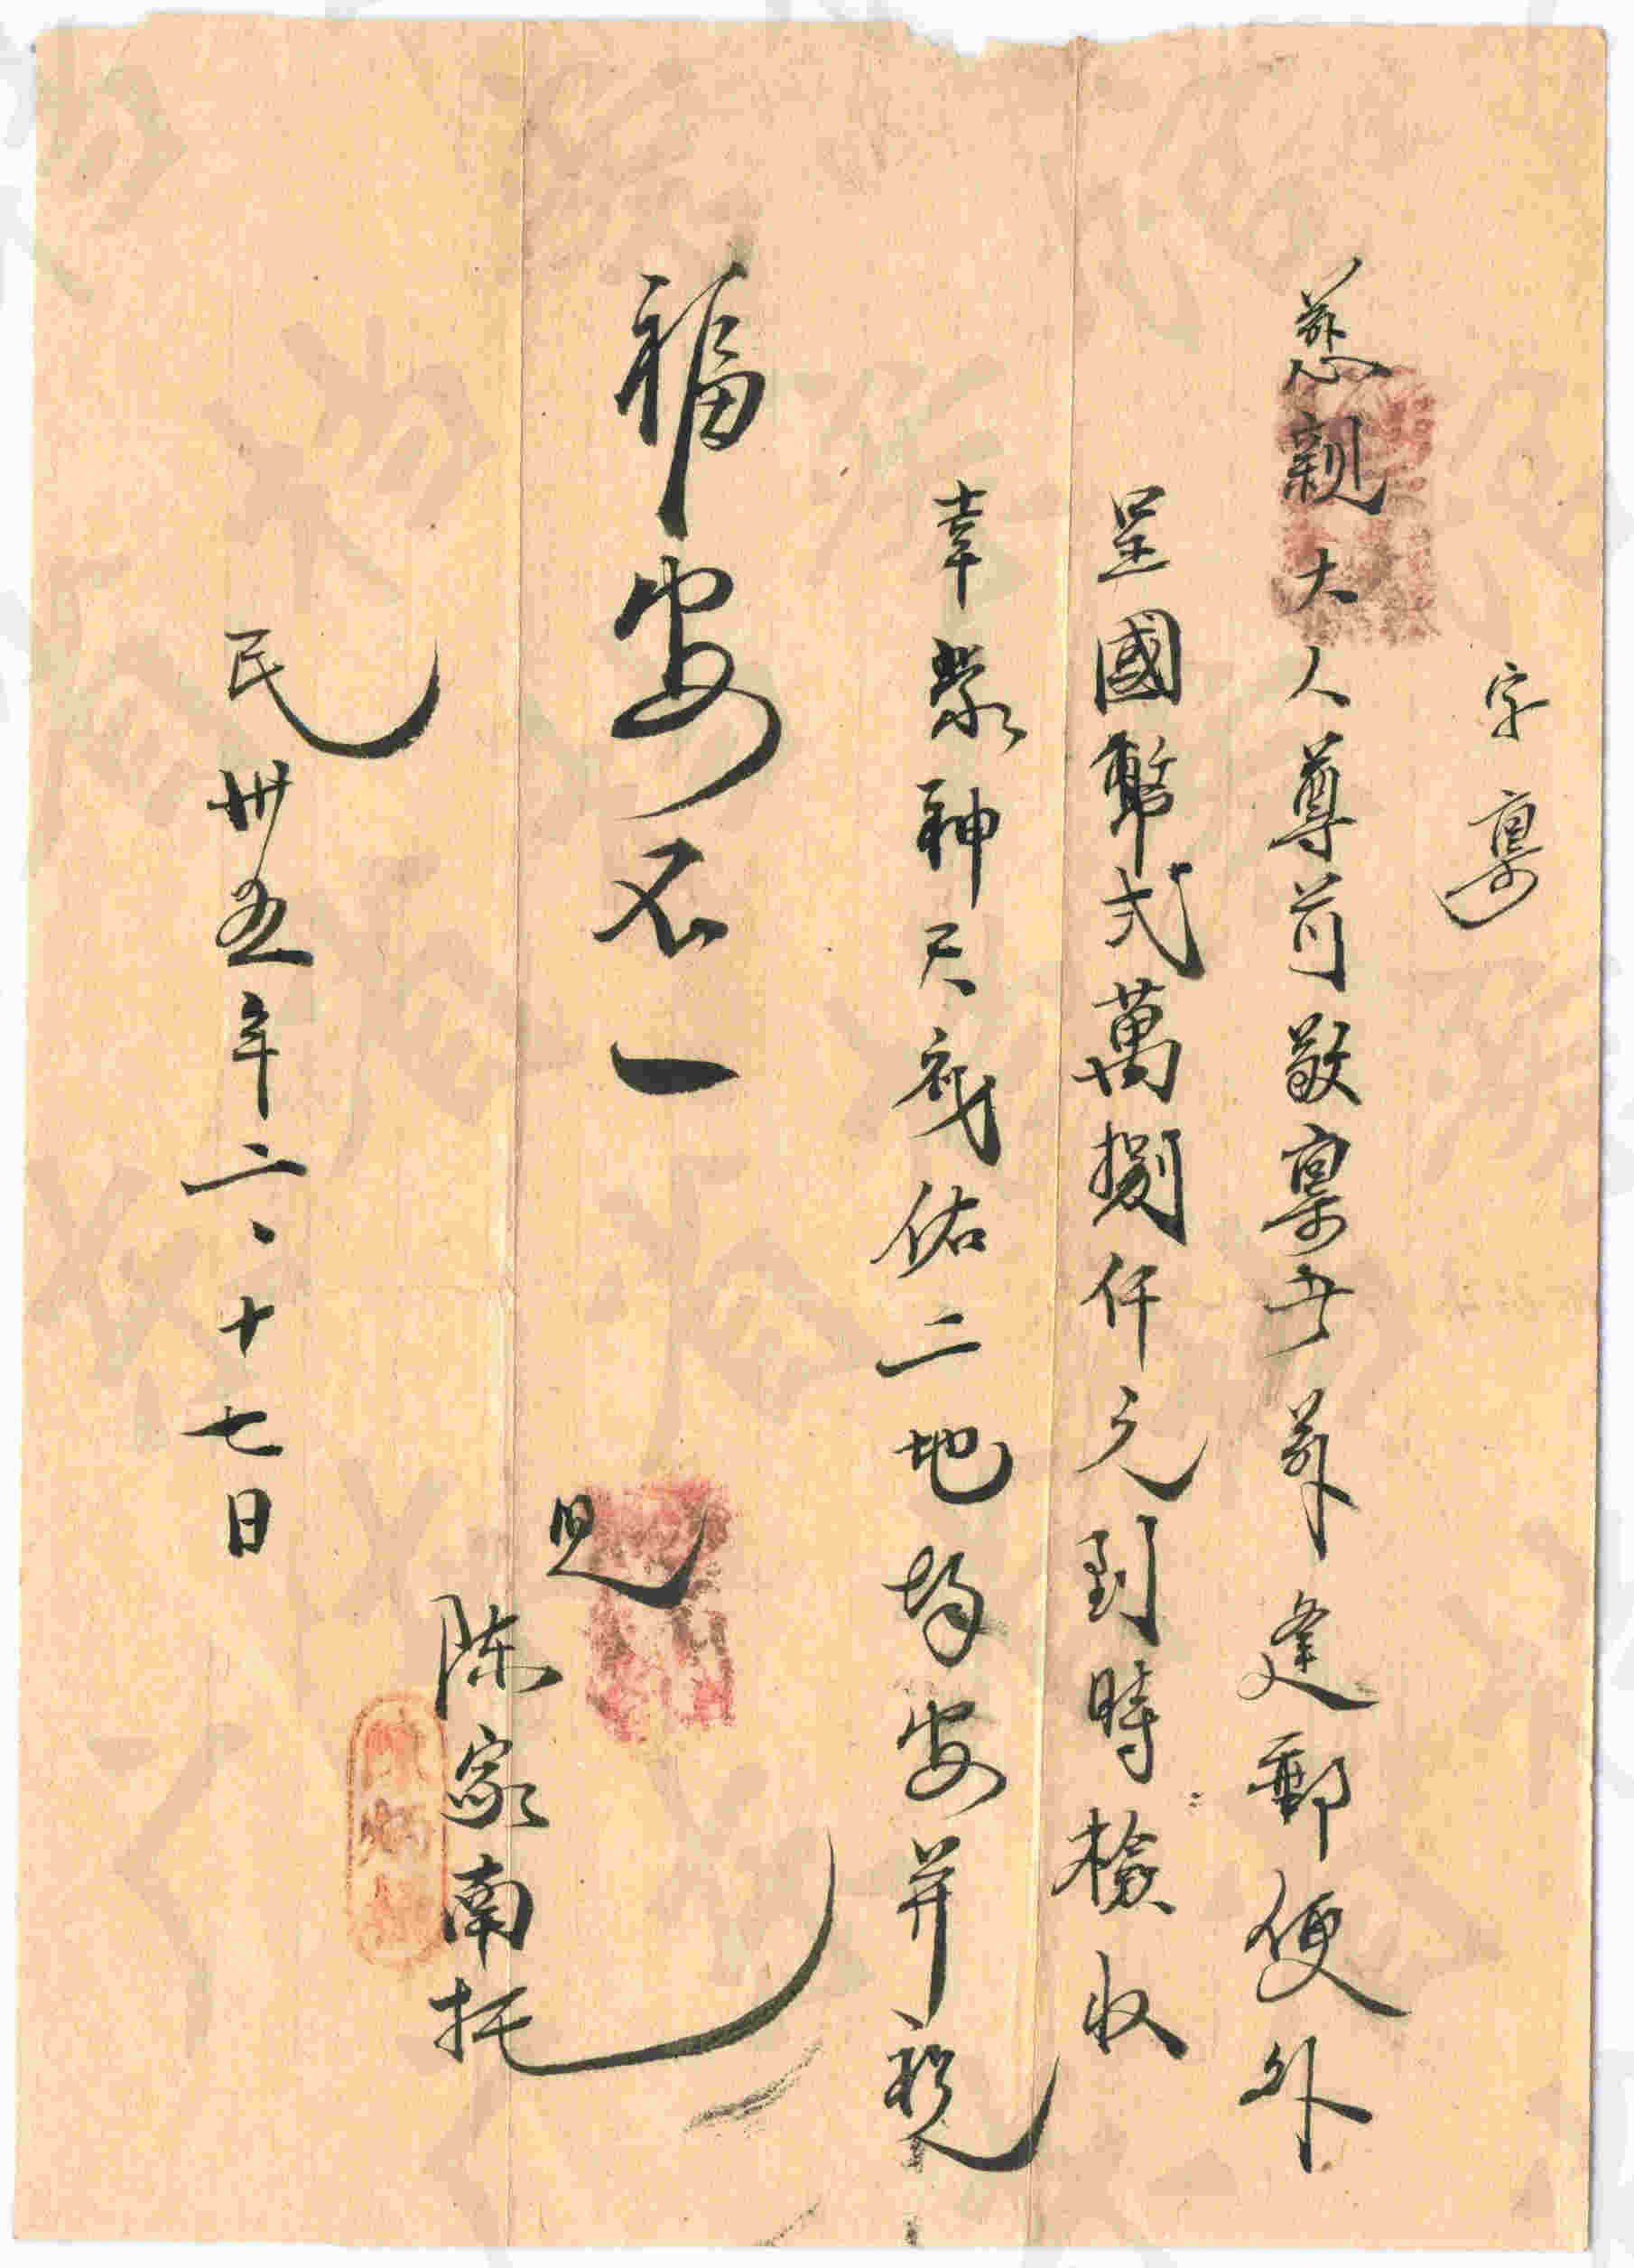 字稟
慈親大人尊前敬稟者兹逢郵便外
呈國幣弍萬捌仟元到時檢收
幸蒙神天戏佑二地均安并祝
福安不一
兒
陈家南托
民卅五年二、十七日